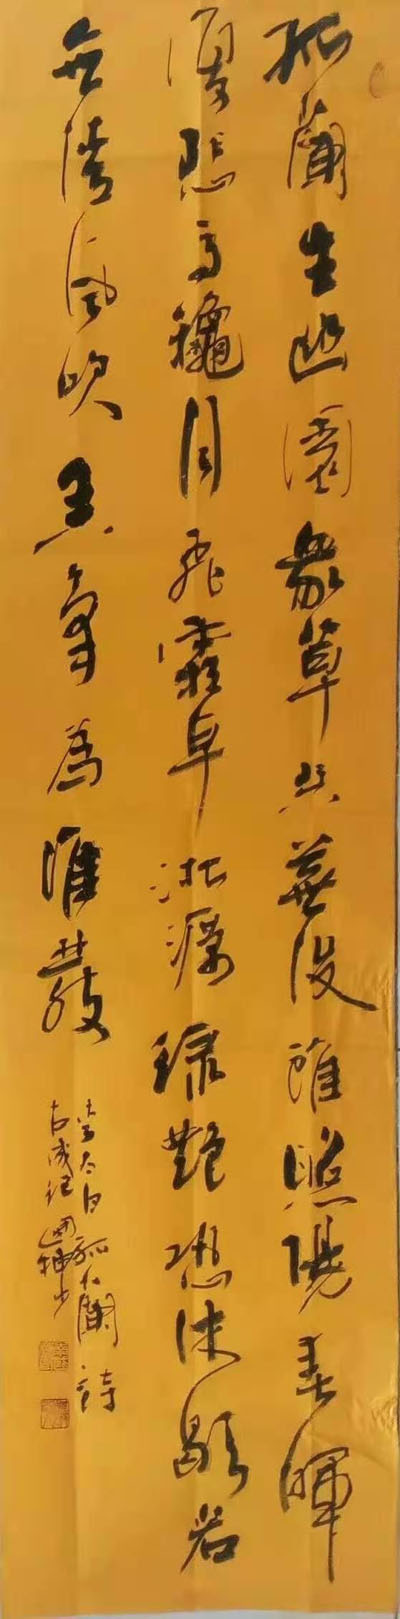 孤蘭生幽園衆草共蕪没雖照陽春暉
復悲高龝月飛霜早淅瀝緑艷恐休歇若
無清風吹香氣為誰發
李太白孤蘭詩
古成紀